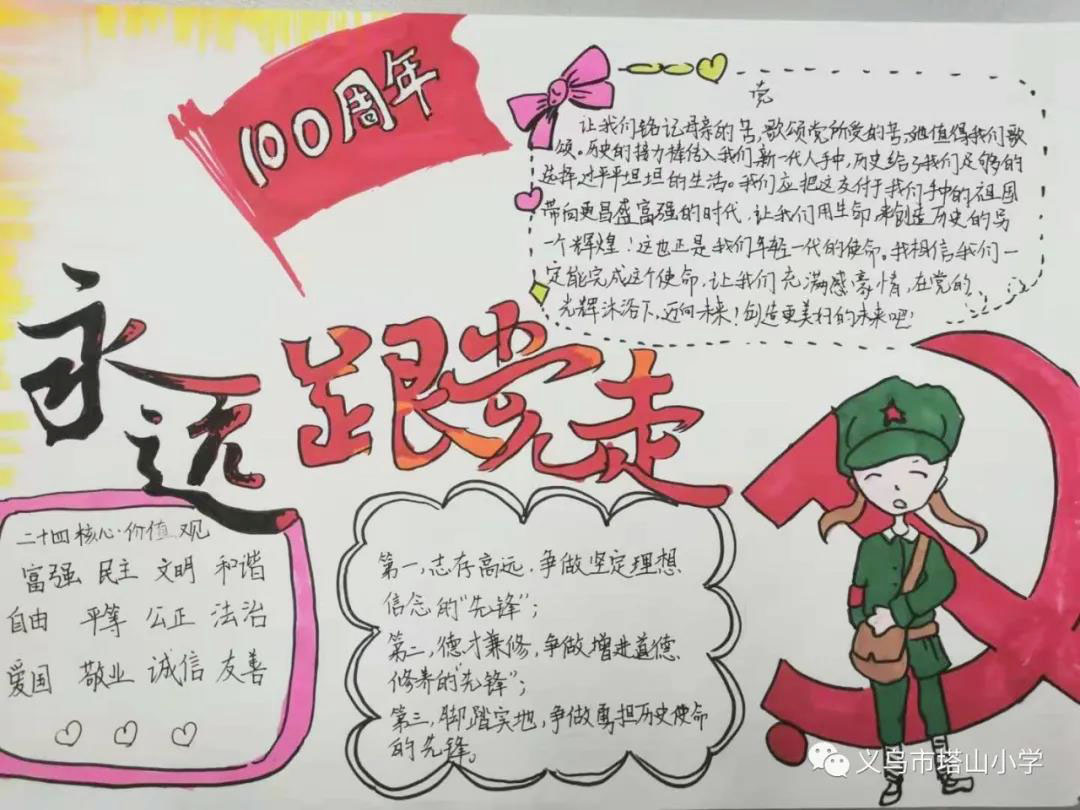 100周年
党
让我们铭记母亲的苦,歌颂党所受的苦,她值得我们歌
颂。历史的接力棒传入我们新一代人手中,历史给了我们足够的
选择,过平平坦坦的生活。我们应把这交付于我们手中的祖国
带向更昌盛富强的时代,让我们用生命来创造历史的另
一个辉煌!这也正是我们年轻一代的使命。我相信我们一
定能完成这个使命,让我们充满感豪情,在党的
光辉沐浴下,迈向未来!创造更美好的未来吧!
永远跟党走
二十四核心·价值观
富强 民主 文明 和谐
自由 平等 公正 法治
爱国 敬业 诚信 友善
第一,志存高远,争做坚定理想
信念的"先锋";
第二,德才兼修,争做增进道德
修养的"先锋";
第三,脚踏实地,争做勇担历史使命
的先锋。
义乌市塔山小学